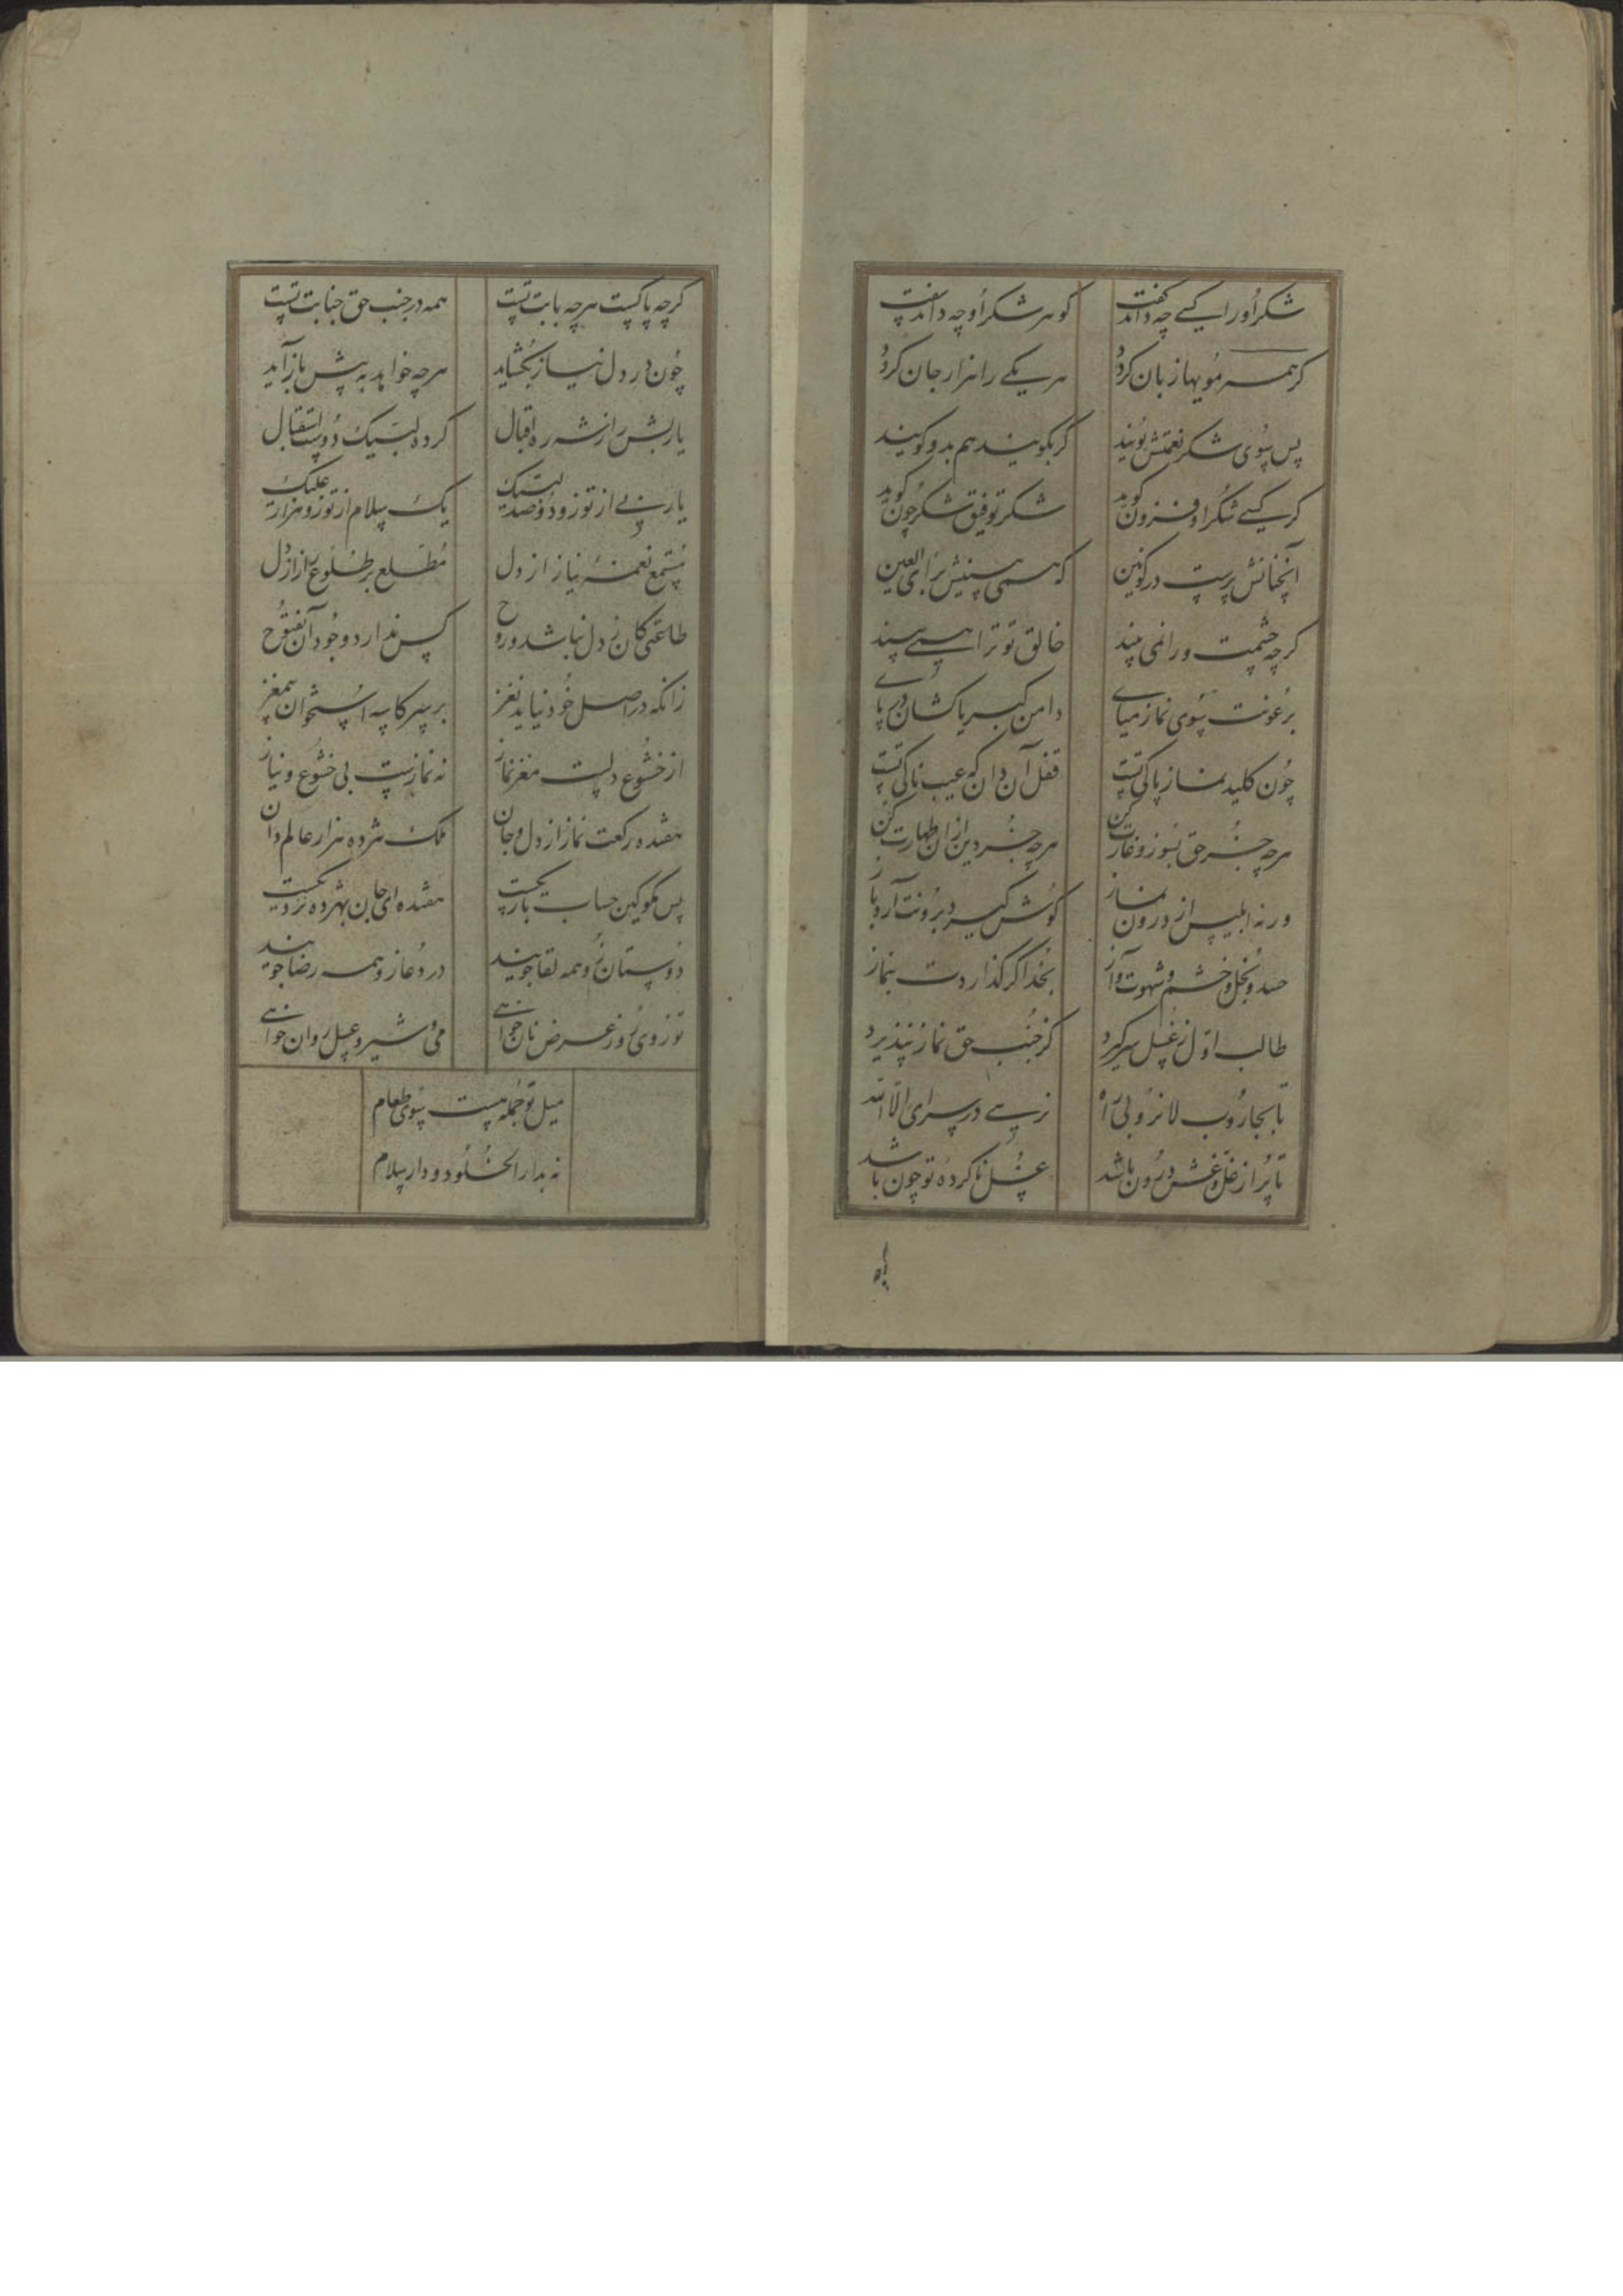 شکر او را کسی چه داند گفت گوهر شکر او چه داند سفت
گر همه مویها زبان گردد هر یکی را هزار جان گردد
پس بسوی شکر نعمتش پویند گر بگویند هم بدو گویند
گر کسی شکر او فزون گوید شکر توفیق شکر چون گوید
آنچنانش پرست در کونین که همی بینیش برای العین
گر چه چشمت ورا نمی بیند خالق تو ترا همی بیند
برعونت بسوی نماز میای دامن کبریا کشان در پای
چون کلید نماز پاکی تست قفل آن دان که عیب ناکی تست
هر چه جز حق بسوز و غارت کن هر چه جز دین ازان طهارت کن
ورنه ابلیس از درون نماز گوش گیرد برونت آرد باز
حسد و بخل و خشم و شهوت و آز بخدا گر گذاردت بنماز
طالب اول ز غسل سر گیرد کز جنب حق نماز نپذیرد
تا بجاروب لا نروبی راه نرسی در سرای الا الله
تا پر از غل و غش درون باشد غسل ناکرده تو چون باشد
گر چه پاکست هر چه بابت تست همه در جنب حق جنابت تست
چون در دل نیاز بگشاید هر چه خواهد به پیش باز آید
یا ربش را ز شه ره اقبال کرده لبیک دوست استقبال
یا ربی از تو زو دو صد لبیک یک سلام از تو زو هزار علیک
مستمع نغمه نیاز از دل مطلع بر طلوع راز از دل
طاعتی کان ز دل نباشد و روح کس ندارد وجود آن بفتوح
زانکه در اصل خود نیاید نغز بر سر کاسه استخوان بیمغز
از خشوع دلست مغز نماز نه نمازست بی خشوع و نیاز
هفده رکعت نماز از دل و جان ملک هژده هزار عالم دان
پس مگو کین حساب باریکست هفده ای جان بهژده نزدیکست
دوستان زو همه لقا جویند در دعا زو همه رضا جویند
تو ز وی روز عرض نان خواهی می و شیر و عسل روان خواهی
میل تو جمله هست بسوی طعام
نه بدار الخلود و دار سلام